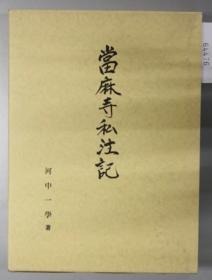 當麻寺私注記
河中一學 著